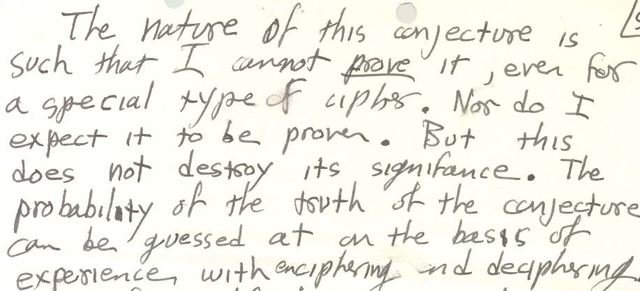 The nature of this conjecture is
such that I cannot prove it, even for
a special type of cipher. Nor do I
expect it to be proven. But this
does not destroy its signifance. The
probability of the truth of the conjecture
can be guessed at on the basis of
experience with enciphering and deciphering